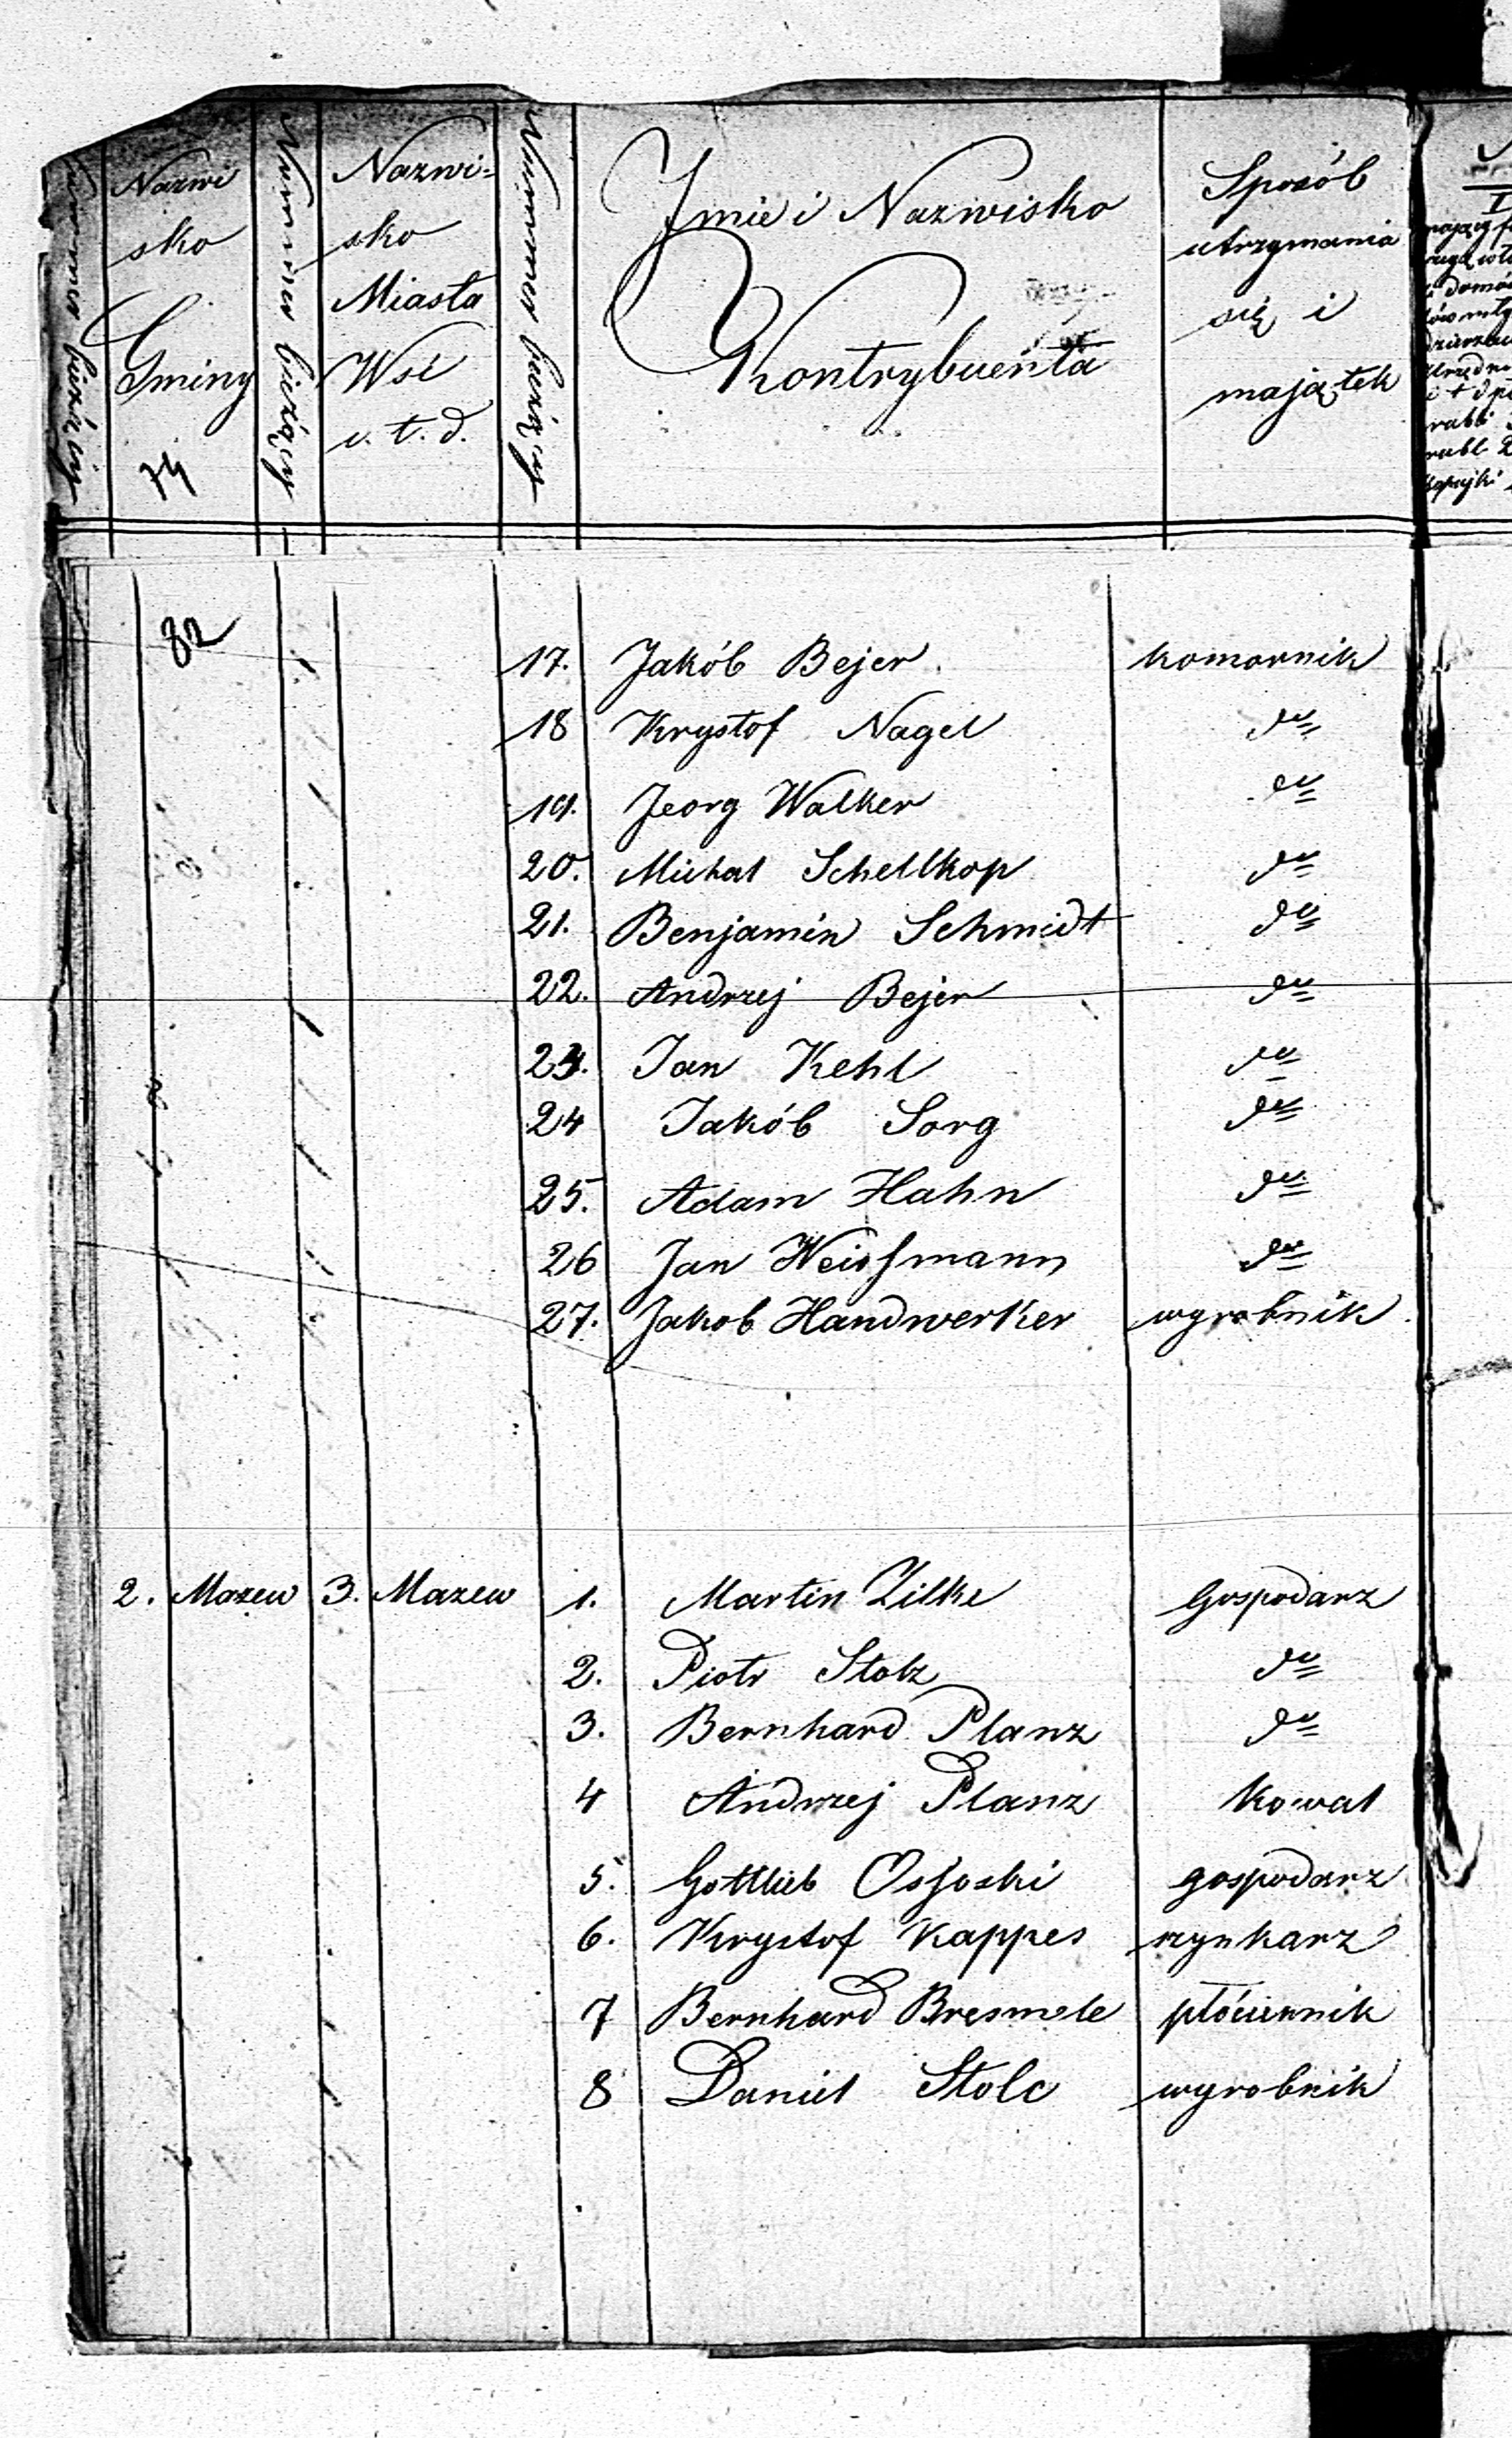 Nummer bieżący
Nazwi
sko
Gminy
74
Nummer bieżący
Nazwi=
sko
Miasta
Wsi
i. t. d.
Nummer bieżący
Jmie i Nazwisko
Kontrybuenta
Sposób
utrzymania
się i
majątek
82
17. Jakób Bejer komornik
18 Krystof Nagel do
19. Jeorg Walker do
20. Michał Schellkop do
21. Benjamin Schmidt do
22. Andrzej Bejer do
23. Jan Kehl do
24 Jakób Sorg do
25. Adam Hahn do
26 Jan Weissmann do
27. Jakob Handwerker wyrobnik
2. Mazew 3. Mazew 1. Martin Zilke Gospodarz
2. Piotr Stolz do
3. Bernhard Planz do
4 Andrzej Planz Kowal
5. Gottlieb Ossoski gospodarz
6. Krystof Kappes szynkarz
7 Bernhard płóciennik
8 Daniel Stolc wyrobnik